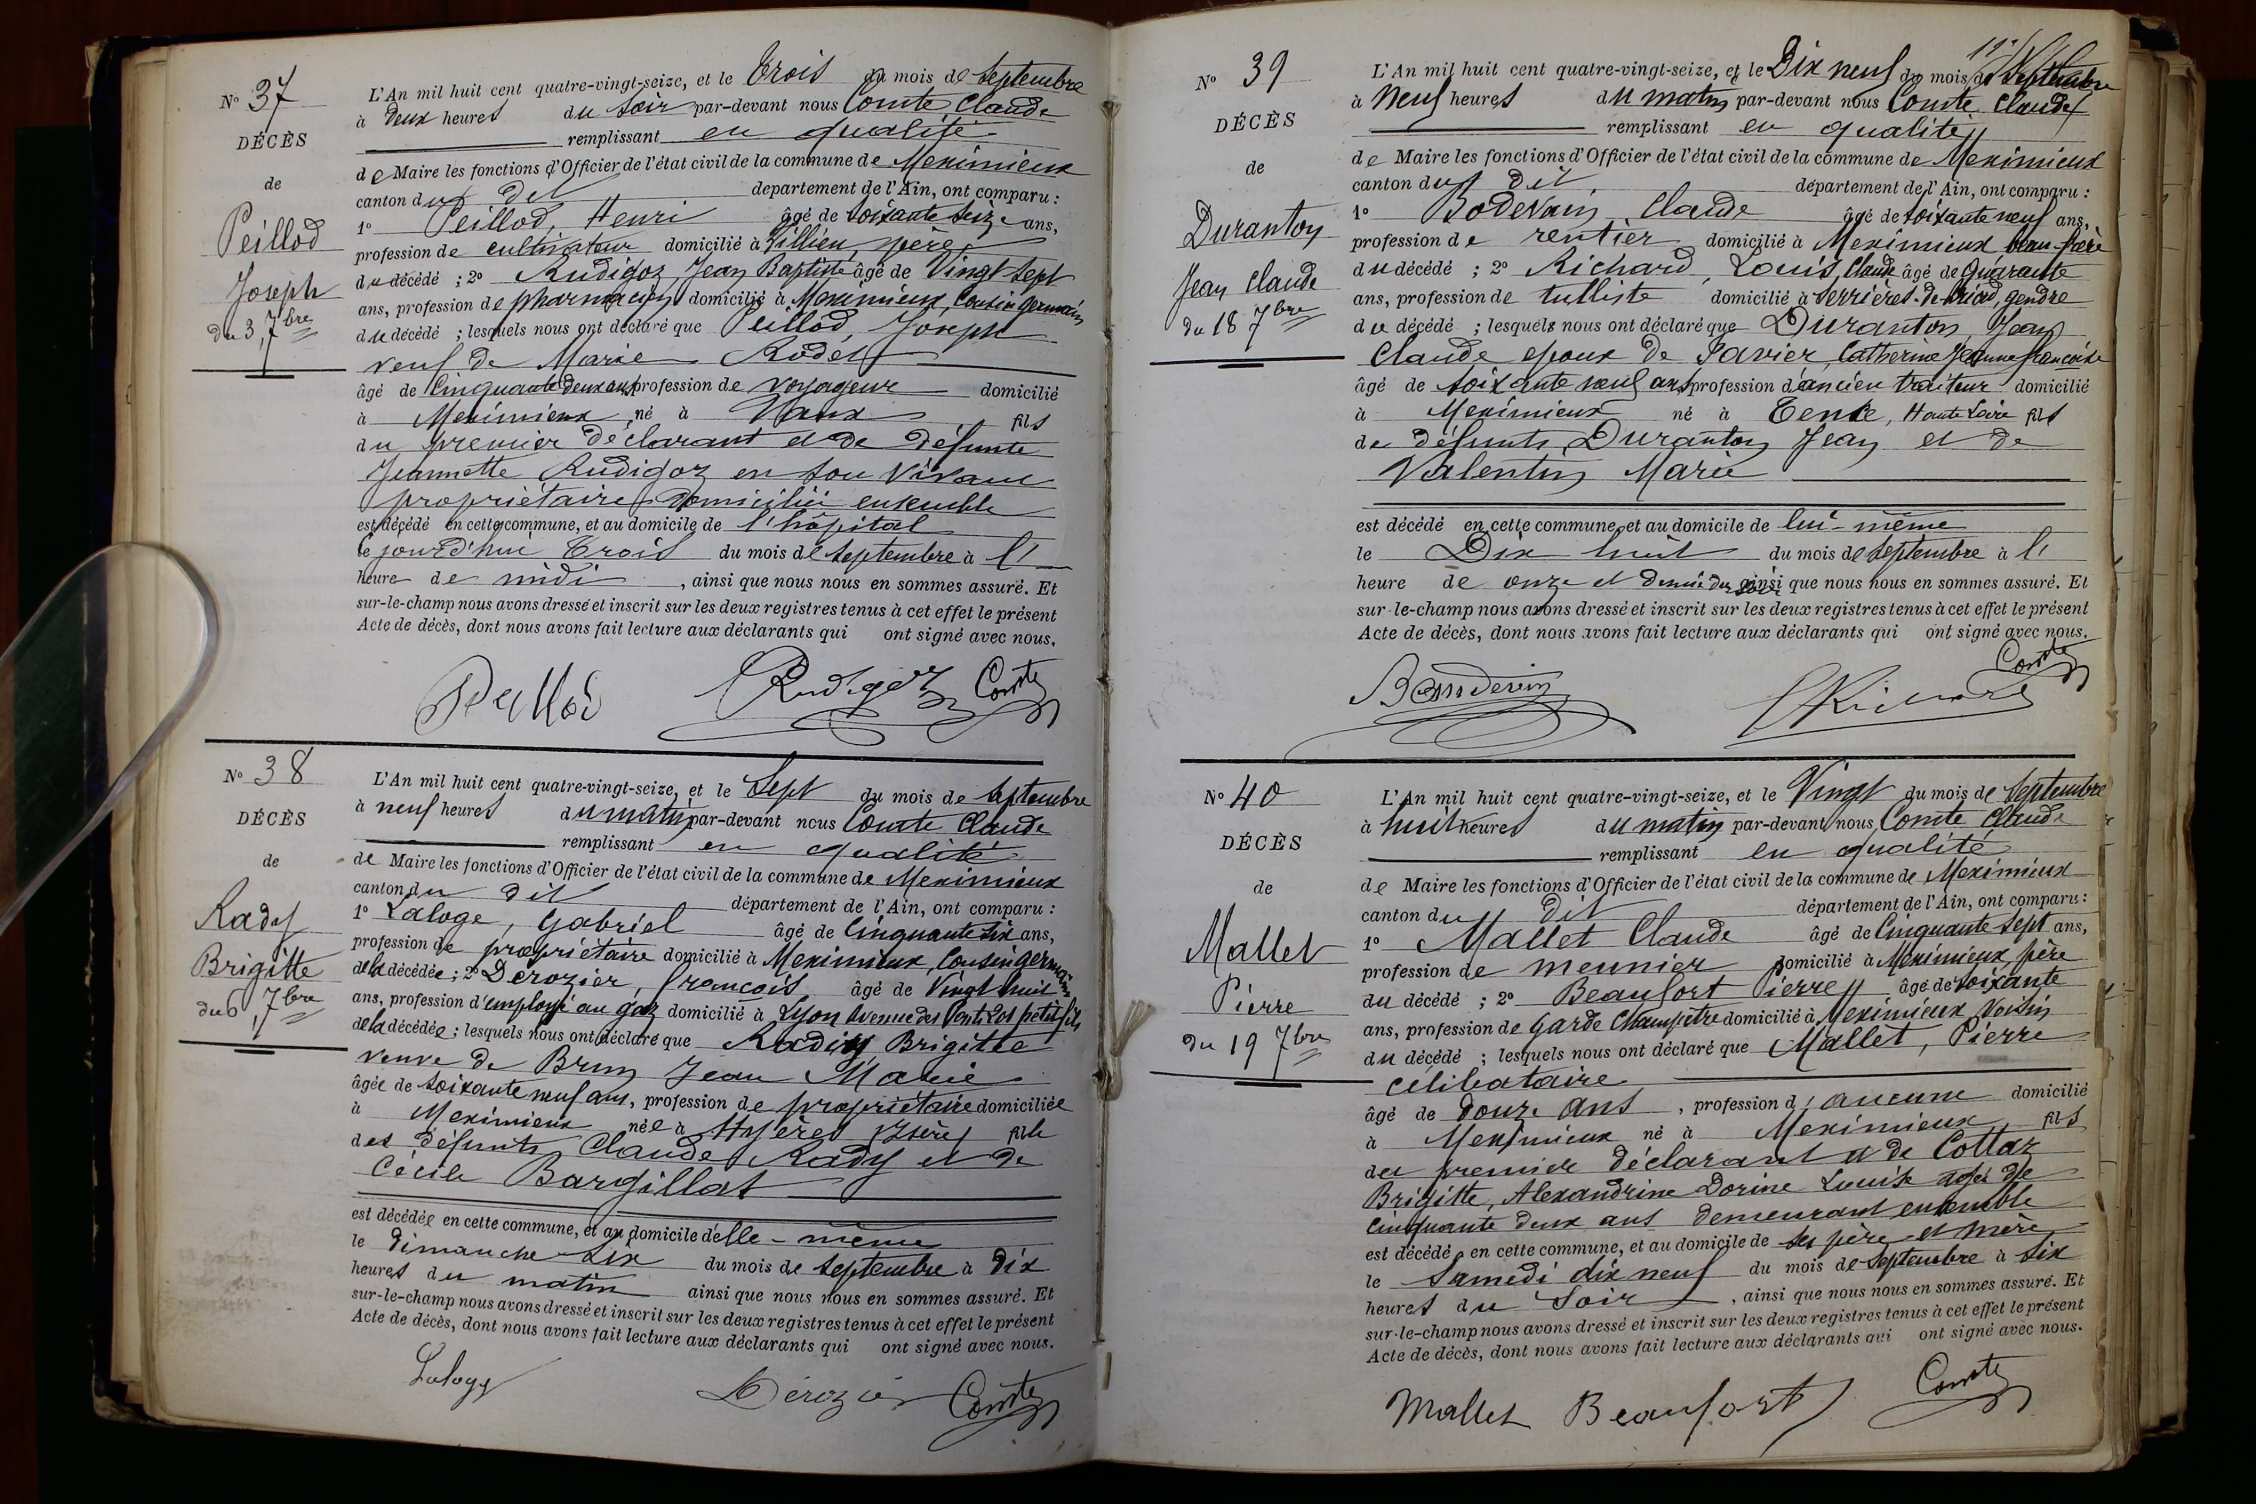 N° 37
DÉCÈS
de
Peillod
Joseph
du 3, 7bre
L'An mil huit cent quatre-vingt-seize, et le Trois du mois de Septembre
à deux heures du soir par-devant nous Comte Claude
remplissant en qualité
de Maire les fonctions d'Officier de l'état civil de la commune de Meximieux
canton du dit département de l'Ain, ont comparu :
1° Peillod, Henri âgé de soixante seize ans,
profession de cultivateur domicilié à Villieu, père
du décédé ; 2° Rudigoz Jean Baptiste âgé de Vingt sept
ans, profession de pharmacien domicilié à Meximieux, Cousin germain
du décédé ; lesquels nous ont déclaré que Peillod Joseph
veuf de Marie Rodet
âgé de Cinquante deux ans profession de voyageur domicilié
à Meximieux né à Vaux fils
du premier déclarant et de défunte
Jeannette Rudigoz en son vivant
propriétaire domiciliée ensemble
est décédé en cette commune, et au domicile de l'hôpital
le jourd'hui Trois du mois de Septembre à l'
heure de midi, ainsi que nous nous en sommes assuré. Et
sur-le-champ nous avons dressé et inscrit sur les deux registres tenus à cet effet le présent
Acte de décès, dont nous avons fait lecture aux déclarants qui ont signé avec nous.
Peillod Rudigoz Comte
N° 38
DÉCÈS
de
Rady
Brigitte
du 6, 7bre
L'An mil huit cent quatre-vingt-seize, et le Sept du mois de Septembre
à neuf heures du matin par-devant nous Comte Claude
remplissant en qualité
de Maire les fonctions d'Officier de l'état civil de la commune de Meximieux
canton du dit département de l'Ain, ont comparu :
1° Laloge, Gabriel âgé de Cinquante six ans,
profession de propriétaire domicilié à Meximieux, Cousin germain
de la décédée ; 2° Derozier, François âgé de Vingt huit
ans, profession d'employé au gaz domicilié à Lyon Avenue des Ponts petit fils
de la décédée ; lesquels nous ont déclaré que Rady Brigitte
veuve de Brun Jean Marie
âgée de soixante neuf ans, profession de propriétaire domiciliée
à Meximieux née à Hyères Isère fille
des défunts Claude Rady et de
Cécile Bargillat
est décédée en cette commune, et au domicile d'elle-même
le dimanche six du mois de Septembre à dix
heures du matin ainsi que nous nous en sommes assuré. Et
sur-le-champ nous avons dressé et inscrit sur les deux registres tenus à cet effet le présent
Acte de décès, dont nous avons fait lecture aux déclarants qui ont signé avec nous.
Laloge Dérozier Comte
N° 39
DÉCÈS
de
Duranton
Jean Claude
du 18 7bre
L'An mil huit cent quatre-vingt-seize, et le Dix neuf du mois de Septembre
à Neuf heures du matin par-devant nous Comte Claude
remplissant en qualité
de Maire les fonctions d'Officier de l'état civil de la commune de Meximieux
canton du dit département de l'Ain, ont comparu :
1° Bodevain Claude âgé de soixante neuf ans,
profession de rentier domicilié à Meximieux beau-frère
du décédé ; 2° Richard, Louis, Claude âgé de Quarante
ans, profession de tulliste domicilié à Serrières-de-Briord, gendre
du décédé ; lesquels nous ont déclaré que Duranton Jean
Claude époux de Savier, Catherine Jeanne françoise
âgé de soixante neuf ans profession d'ancien traiteur domicilié
à Meximieux né à Tence, Haute Loire fils
de défunts Duranton Jean et de
Valentin Marie
est décédé en cette commune, et au domicile de lui-même
le Dix huit du mois de Septembre à l'
heure de onze et demie du soir ainsi que nous nous en sommes assuré. Et
sur-le-champ nous avons dressé et inscrit sur les deux registres tenus à cet effet le présent
Acte de décès, dont nous avons fait lecture aux déclarants qui ont signé avec nous.
Comte
Richard
N° 40
DÉCÈS
de
Mallet
Pierre
du 19 7bre
L'An mil huit cent quatre-vingt-seize, et le Vingt du mois de Septembre
à huit heures du matin par-devant nous Comte Claude
remplissant en qualité
de Maire les fonctions d'Officier de l'état civil de la commune de Meximieux
canton du dit département de l'Ain, ont comparu :
1° Mallet Claude âgé de Cinquante sept ans,
profession de meunier domicilié à Meximieux, père
du décédé ; 2° Beaufort Pierre âgé de soixante
ans, profession de Garde Champêtre domicilié à Meximieux Voisin
du décédé ; lesquels nous ont déclaré que Mallet, Pierre
célibataire
âgé de douze ans, profession d'aucune domicilié
à Meximieux né à Meximieux fils
du premier déclarant et de Collaz
Brigitte, Alexandrine Dorine Louise agée de
Cinquante deux ans demeurant ensemble
est décédé en cette commune, et au domicile de ses père et mère
le Samedi dix neuf du mois de Septembre à six
heures du Soir, ainsi que nous nous en sommes assuré. Et
sur-le-champ nous avons dressé et inscrit sur les deux registres tenus à cet effet le présent
Acte de décès, dont nous avons fait lecture aux déclarants qui ont signé avec nous.
Mallet Beaufort Comte